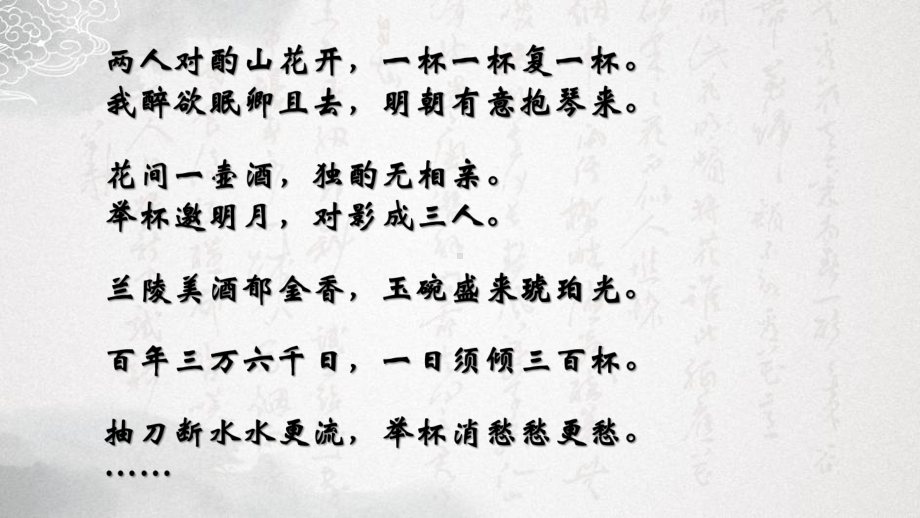 两人对酌山花开，一杯一杯复一杯。
我醉欲眠卿且去，明朝有意抱琴来。
花间一壶酒，独酌无相亲。
举杯邀明月，对影成三人。
兰陵美酒郁金香，玉碗盛来琥珀光。
百年三万六千日，一日须倾三百杯。
抽刀断水水更流，举杯消愁愁更愁。
……